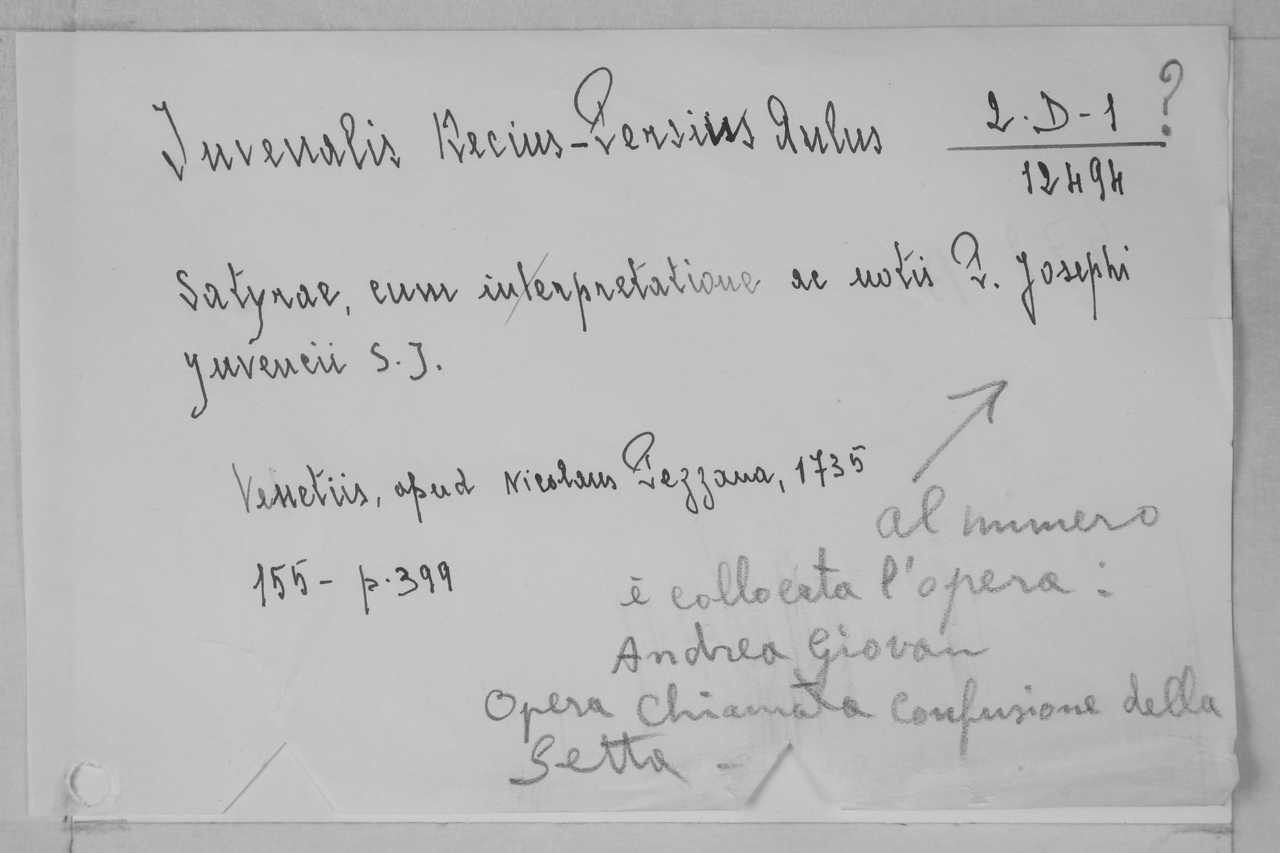 Juvenalis Decius-Persius Aulus
2.D-1 ?
12494
Satyrae, cum interpretatione ac notis P. Josephi
Juvencii S.J.
Venetiis, apud Nicolaus Pezzana, 1735
155- p.399
al numero
è collocata l'opera:
Andrea Giovan
Opera Chiamata Confusione della
Setta -